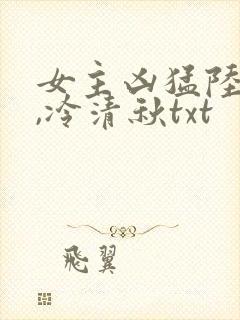 女主凶猛陸
,冷清秋txt
飛翼